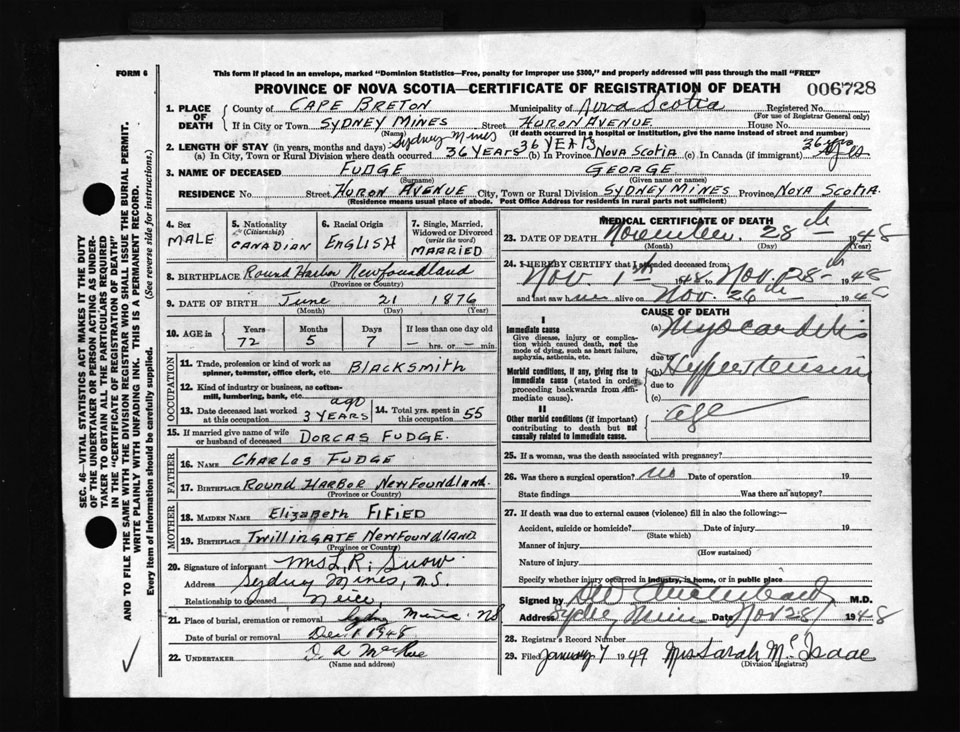 FORM 6
This form if placed in an envelope, marked "Dominion Statistics—Free, penalty for improper use $300," and properly addressed will pass through the mail "FREE"
PROVINCE OF NOVA SCOTIA—CERTIFICATE OF REGISTRATION OF DEATH 006728
1. PLACE OF DEATH County of CAPE BRETON Municipality of Nova Scotia Registered No.
(For use of Registrar General only)
If in City or Town SYDNEY MINES Street HURON AVENUE House No.
(Name) (If death occurred in a hospital or institution, give the name instead of street and number)
Sydney Mines
2. LENGTH OF STAY (in years, months and days) 36 YEARS 26 yrs
(a) In City, Town or Rural Division where death occurred 36 YEARS (b) In Province NOVA SCOTIA (c) In Canada (if immigrant)
3. NAME OF DECEASED FUDGE GEORGE
(Surname) (Given name or names)
RESIDENCE No. Street HURON AVENUE City, Town or Rural Division SYDNEY MINES Province NOVA SCOTIA.
(Residence means usual place of abode. Post Office Address for residents in rural parts not sufficient)
4. Sex MALE
5. Nationality (Citizenship) CANADIAN
6. Racial Origin ENGLISH
7. Single, Married, Widowed or Divorced (write the word) MARRIED
8. BIRTHPLACE Round Harbor Newfoundland
(Province or Country)
9. DATE OF BIRTH June 21 1876
(Month) (Day) (Year)
10. AGE in Years Months Days If less than one day old
72 5 7 — hrs. or — min.
OCCUPATION
11. Trade, profession or kind of work as spinner, teamster, office clerk, etc. BLACKSMITH
12. Kind of industry or business, as cotton-mill, lumbering, bank, etc.
13. Date deceased last worked at this occupation 3 YEARS ago
14. Total yrs. spent in this occupation 55
15. If married give name of wife or husband of deceased DORCAS FUDGE.
FATHER
16. NAME CHARLES FUDGE
17. BIRTHPLACE ROUND HARBOR NEWFOUNDLAND.
(Province or Country)
MOTHER
18. MAIDEN NAME Elizabeth FIFIED
19. BIRTHPLACE TWILLINGATE NEWFOUNDLAND
(Province or Country)
20. Signature of informant Mrs L. R. Snow
Address Sydney Mines, N.S.
Relationship to deceased neice
21. Place of burial, cremation or removal Sydney Mines NS
Date of burial or removal Dec 1 1948
22. UNDERTAKER D. A MacRae
(Name and address)
MEDICAL CERTIFICATE OF DEATH
23. DATE OF DEATH November 28th 1948
(Month) (Day) (Year)
24. I HEREBY CERTIFY that I attended deceased from:
Nov. 1st 1948 to Nov. 28th 1948
and last saw him alive on Nov. 26th 194
CAUSE OF DEATH
I
Immediate cause (a) Myocarditis
Give disease, injury or complication which caused death, not the mode of dying, such as heart failure, asphyxia, asthenia, etc.
due to
Morbid conditions, if any, giving rise to immediate cause (stated in order proceeding backwards from immediate cause). (b) Hypertension
due to
(c)
II
Other morbid conditions (if important) contributing to death but not causally related to immediate cause. age
25. If a woman, was the death associated with pregnancy?
26. Was there a surgical operation? no Date of operation 19
State findings Was there an autopsy?
27. If death was due to external causes (violence) fill in also the following:—
Accident, suicide or homicide? Date of injury 19
(State which)
Manner of injury
(How sustained)
Nature of injury
Specify whether injury occurred in industry, in home, or in public place
Signed by M.D.
Address Sydney Mines Date Nov 28 1948
28. Registrar's Record Number
29. Filed January 7 1949 Mrs Sarah McIsaac
(Division Registrar)
SEC. 46—VITAL STATISTICS ACT MAKES IT THE DUTY
OF THE UNDERTAKER OR PERSON ACTING AS UNDER-
TAKER TO OBTAIN ALL THE PARTICULARS REQUIRED
IN THE "CERTIFICATE OF REGISTRATION OF DEATH"
AND TO FILE THE SAME WITH THE DIVISION REGISTRAR WHO SHALL ISSUE THE BURIAL PERMIT.
WRITE PLAINLY WITH UNFADING INK. THIS IS A PERMANENT RECORD.
Every item of information should be carefully supplied. (See reverse side for instructions.)